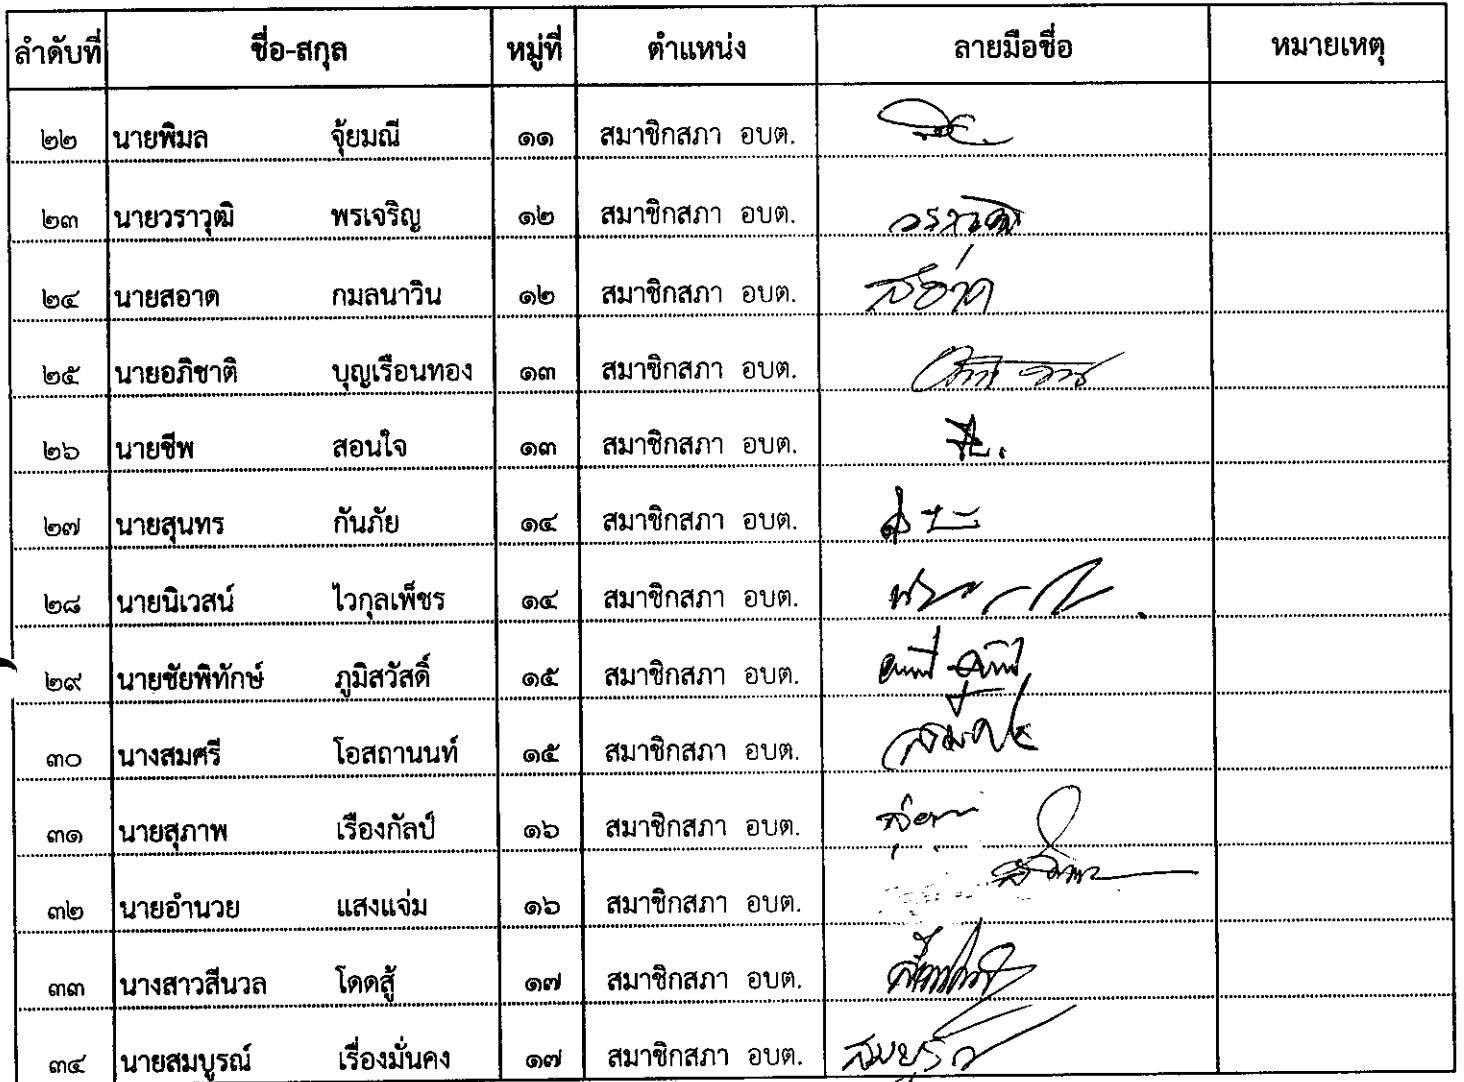 ลำดับที่ ชื่อ-สกุล หมู่ที่ ตำแหน่ง ลายมือชื่อ หมายเหตุ
๒๒ นายพิมล จุ้ยมณี ๑๑ สมาชิกสภา อบต.
๒๓ นายวราวุฒิ พรเจริญ ๑๒ สมาชิกสภา อบต. วราวุฒิ
๒๔ นายสอาด กมลนาวิน ๑๒ สมาชิกสภา อบต. สอ่าด
๒๕ นายอภิชาติ บุญเรือนทอง ๑๓ สมาชิกสภา อบต.
๒๖ นายชีพ สอนใจ ๑๓ สมาชิกสภา อบต.
๒๗ นายสุนทร กันภัย ๑๔ สมาชิกสภา อบต.
๒๘ นายนิเวสน์ ไวกุลเพ็ชร ๑๔ สมาชิกสภา อบต.
๒๙ นายชัยพิทักษ์ ภูมิสวัสดิ์ ๑๕ สมาชิกสภา อบต.
๓๐ นางสมศรี โอสถานนท์ ๑๕ สมาชิกสภา อบต.
๓๑ นายสุภาพ เรืองกัลป์ ๑๖ สมาชิกสภา อบต.
๓๒ นายอำนวย แสงแจ่ม ๑๖ สมาชิกสภา อบต.
๓๓ นางสาวสีนวล โดดสู้ ๑๗ สมาชิกสภา อบต.
๓๔ นายสมบูรณ์ เรื่องมั่นคง ๑๗ สมาชิกสภา อบต.